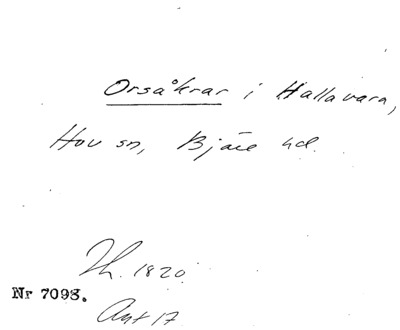 Orsåkrar i Hallavara,
Hov sn, Bjäre hd.
Lh. 1820
Nr 7098.
Ant 17